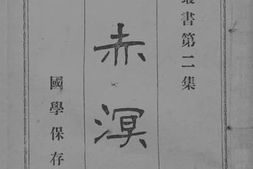 叢書第二集
赤溟
國學保存